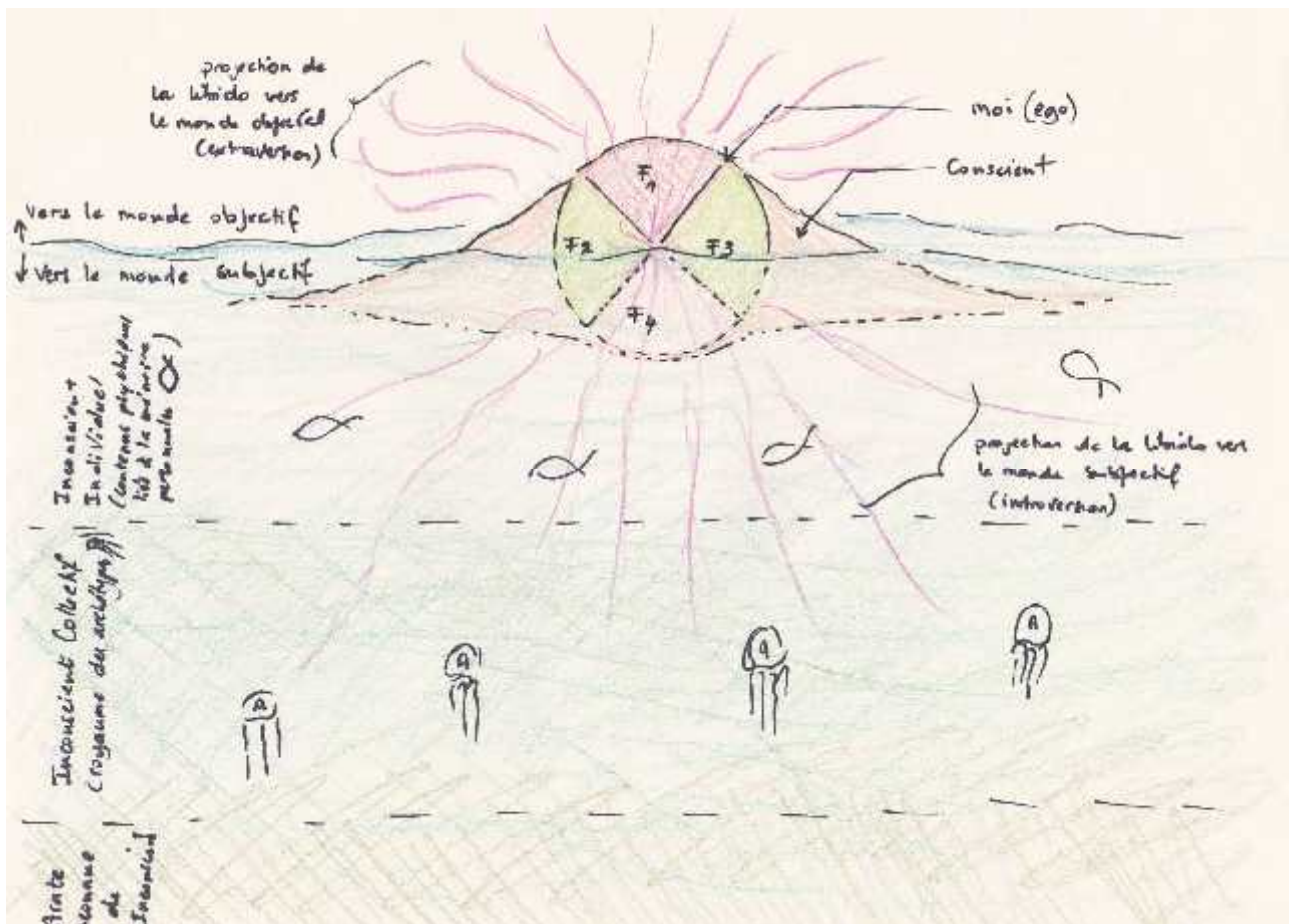 projection de
la libido vers
le monde objectif
(extraversion)
moi (ego)
Conscient
vers le monde objectif
vers le monde subjectif
F1
F2
F3
F4
Inconscient
Individuel
(contenus psychiques
liés à la mémoire
personnelle)
projection de la libido vers
le monde subjectif
(introversion)
Inconscient Collectif
(royaume des archétypes)
A
A
A
A
de